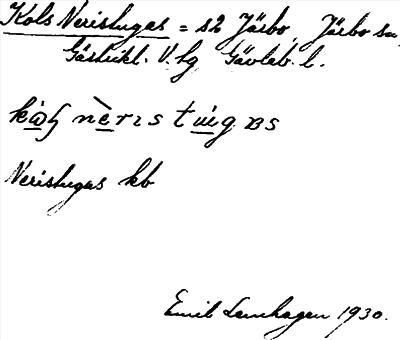 Kols Neristugas = s2 Järbo, Järbo sn,
Gästrikl. V. hg Gävleb. l.
nèristúgas
Neristugas kb
Emil Lannhagen 1930.